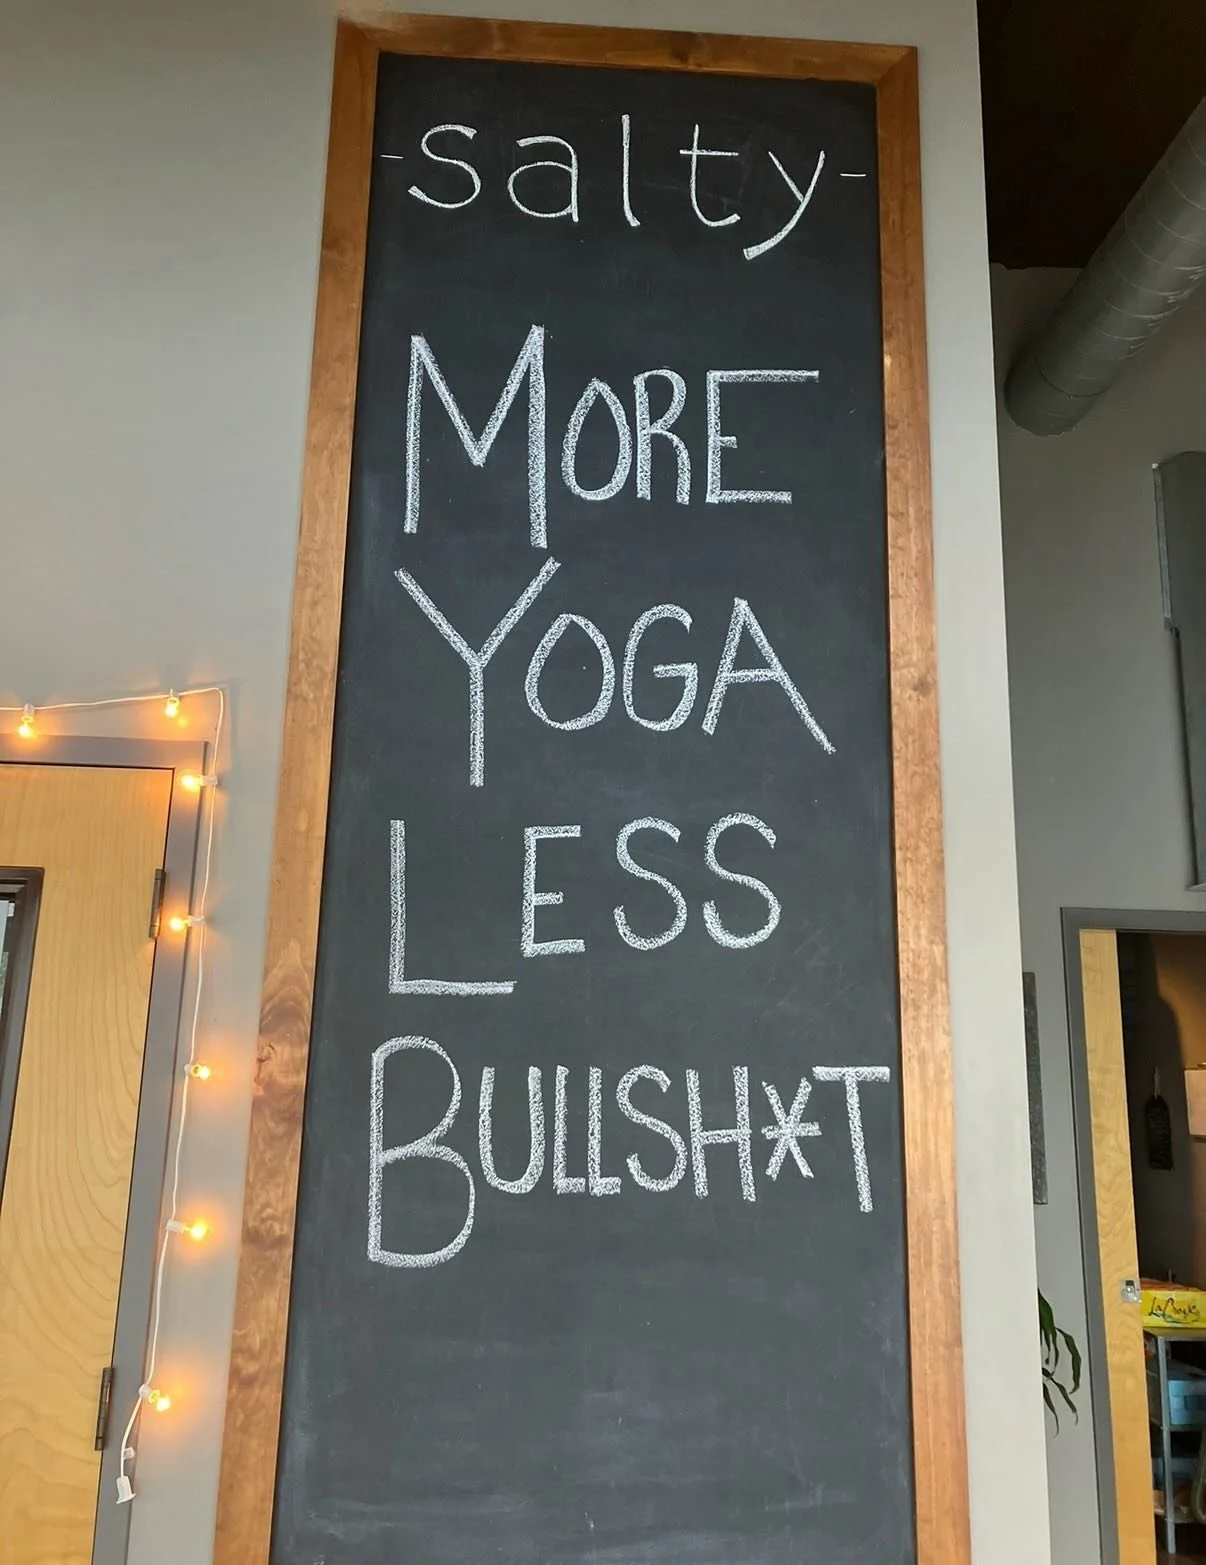 -salty-
MORE
YOGA
LESS
BULLSH*T
LaCroix